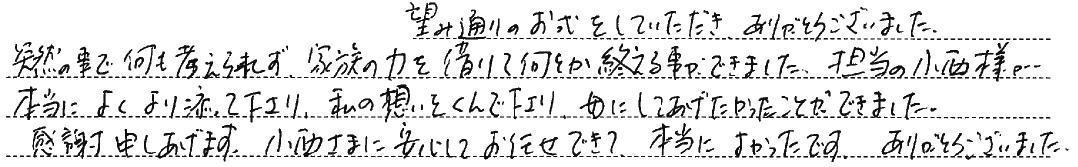 望み通りのお式をしていただき、ありがとうございました。
突然の事で何も考えられず、家族の力を借りて何とか終える事ができました。担当の小西様…
本当によくより添って下さり、私の想いをくんで下さり、母にしてあげたかったことができました。
感謝申しあげます。小西さまに安心してお任せできて、本当によかったです。ありがとうございました。